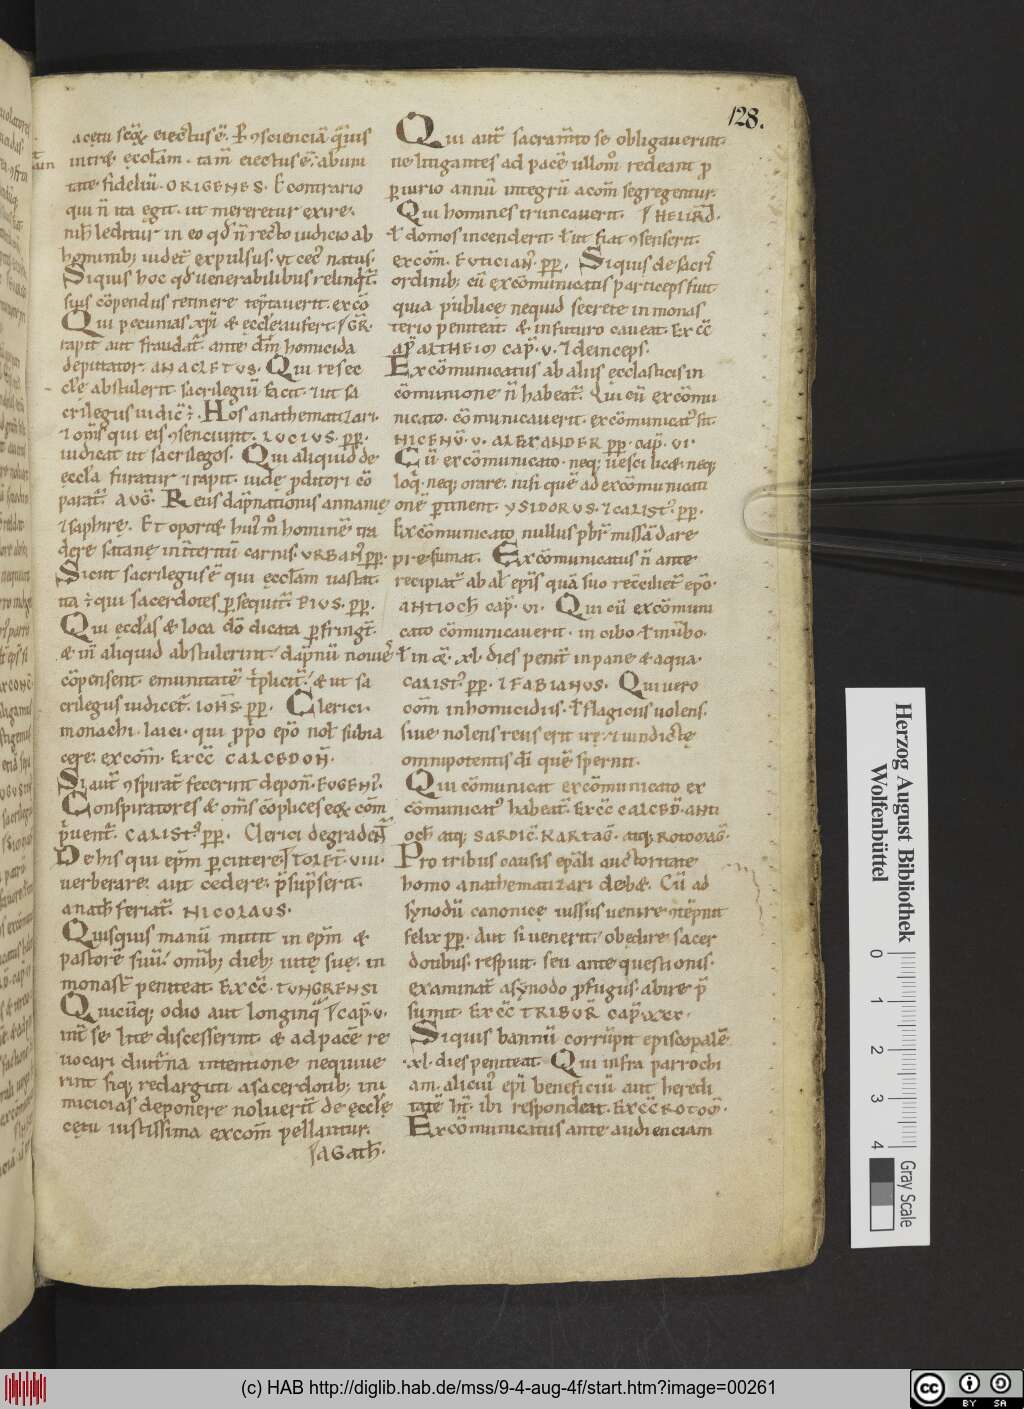 128.
acętu scōꝝ eiectus ē. P ꝯscienciā q̄uis
intret ęccl̄am. tam̄ eiectus ē. abuni
tate fideliū. ORIGENES. E contrario
qui n̄ ita ęgit. ut mereretur exire.
nih̄ leditur in eo qđ n̄ recto iudicio ab
hominib; uidet̄ expulsus. VT CEC̄ NATUS.
Siquis hoc qđ uenerabilibus relinqt̄.
suis cōpendiis retinere tēptauerit. excō
Qui pecunias xp̄i & eccl̄e aufert. GR̄.
rapit aut fraudat̄. ante dm̄ homicida
deputator. ANACLETUS. Qui res ec
cl̄e abstulerit. sacrilegiū facit. ⁊ ut sa
crilegus iudic̄. Hos anathematizari.
⁊ om̄s qui eis ꝯsenciunt. LUCIUS. PP.
iudicat ut sacrilegos. Qui aliquid de
eccl̄a furatur ⁊ rapit. iudę ꝓditori cō
parat̄. AUḠ. Reus dāpnationis annanię
⁊ saphirę. Et oportet hui'm̊ hominē tra
dere satanę in int̄itū carnis. URBAN' PP.
Sicut sacrilegus ē qui ęccl̄am uastat.
ita qui sacerdotes ꝑsequit̄. PIUS. PP.
Qui ęccl̄as & loca dō dicata ꝑfringt̄.
& in̄ aliquid abstulerint. dāpnū
cōpensent. emunitatē t̄plicit̄. & ut sa
crilegus iudicet̄. IOH̄S. PP. Clerici.
monachi. laici. qui ꝓp̊o epō nol̄ subia
cere. excom̄. EXCC̄ CALCEDON̄.
Si aut̄ ꝯspirat̄ fecerint depon̄. EUGENI'.
Conspiratores & om̄s cōplices eoꝝ com̄
p̄uent̄. CALIST' PP. Clerici degradent̄
De his qui epm̄ percutere. TOLET̄. VIII.
uerberare. aut cędere. p̄sūpserit.
anath̄ feriat̄. NICOLAUS.
Quisquis manū mittit in epm̄ &
pastorē suū. omīb; dieb; uitę suę. in
monast̄ peniteat. EXCC̄. TUNGRENSI
Quicūq; odio aut longinq̄ CAP. V.
int̄ se lite discesserint. & ad pacē re
uocari diut̄na intentione nequiue
rint siq; redarguti a sacerdotib; ini
micicias deponere noluerit̄ de ęccl̄ę
cętu iustissima excom̄ pellantur.
AGATH̄.
Qui aut̄ sacram̄to se obligauerint.
ne litigantes ad pacē ullom̊ redeant ꝓ
ꝑiurio annū integrū acom̄ segregentur.
Qui homines truncauerit. HEURD̄.
ł domos incenderit. ł ut fiat ꝯsenserit.
excom̄. EUTICIAN̄. PP. Siquis de sacri
ordinib; cū excōmunicatis particeps fuit
quia publicę nequid secrete in monas
terio peniteat & in futuro caueat. EXCC̄
AP̄ ALTHEIM CAP̄. V. ⁊ deinceps.
Excōmunicatus ab aliis ecclasticis in
cōmunione n̄ habeat̄. Qui cū excōmu
nicato. cōmunicauerit. excōmunicat' sit.
NICENŪ. V. ALEXANDER PP. CAP̄. VI.
Cū excōmunicato. neq; uesci licet. neq;
loq̄. neq; orare. nisi quę ad excōmunicati
onē ꝑtinent. YSIDORUS. ⁊ CALIST'. PP.
Excōmunicato nullus pbr̄ missā dare
presumat. Excōmunicatus n̄ ante
recipiat̄ ab al̄ ep̄is quā suo recēiliet̄ epō.
ANTIOCH̄ CAP̄. VI. Qui cū excōmuni
cato cōmunicauerit. in cibo ł in ūbo.
ł in ōr̄. xl. dies penit̄ in pane & aqua.
CALIST' PP. ⁊ FABIANUS. Qui uero
com̄ in homicidiis. ł flagiciis uolens.
siue nolens reus erit irę. ⁊ uindictę
omnipotentis di quē spernit.
Qui cōmunicat excōmunicato ex
cōmunicat' habeat̄. EXCC̄ CALCED̄. ANTI
OCH̄. atq; SARDIC̄. KARTAḠ. atq; ROTOMAḠ.
Pro tribus causis epāli auctoritate
homo anathematizari debet. Cū ad
synodū canonicę iussus uenire ꝯtēpnit
felix PP. Aut si uenerit. obędire sacer
dotibus. respuit. seu ante questionis.
examinat̄ a synodo ꝓfugus. abire p̄
sumit. EXCC̄ TRIBUR̄ CAP̄. XXX.
Siquis bannū corrūpit episcopalē
.xl. dies peniteat. Qui infra parrochi
am. alicui' epi beneficiū aut heredi
tatē ht̄. ibi respondeat. EXCC̄ ROTOM̄.
Excōmunicatus ante audienciam
Herzog August Bibliothek
Wolfenbüttel
0 1 2 3 4
Gray Scale
(c) HAB http://diglib.hab.de/mss/9-4-aug-4f/start.htm?image=00261
cc BY SA